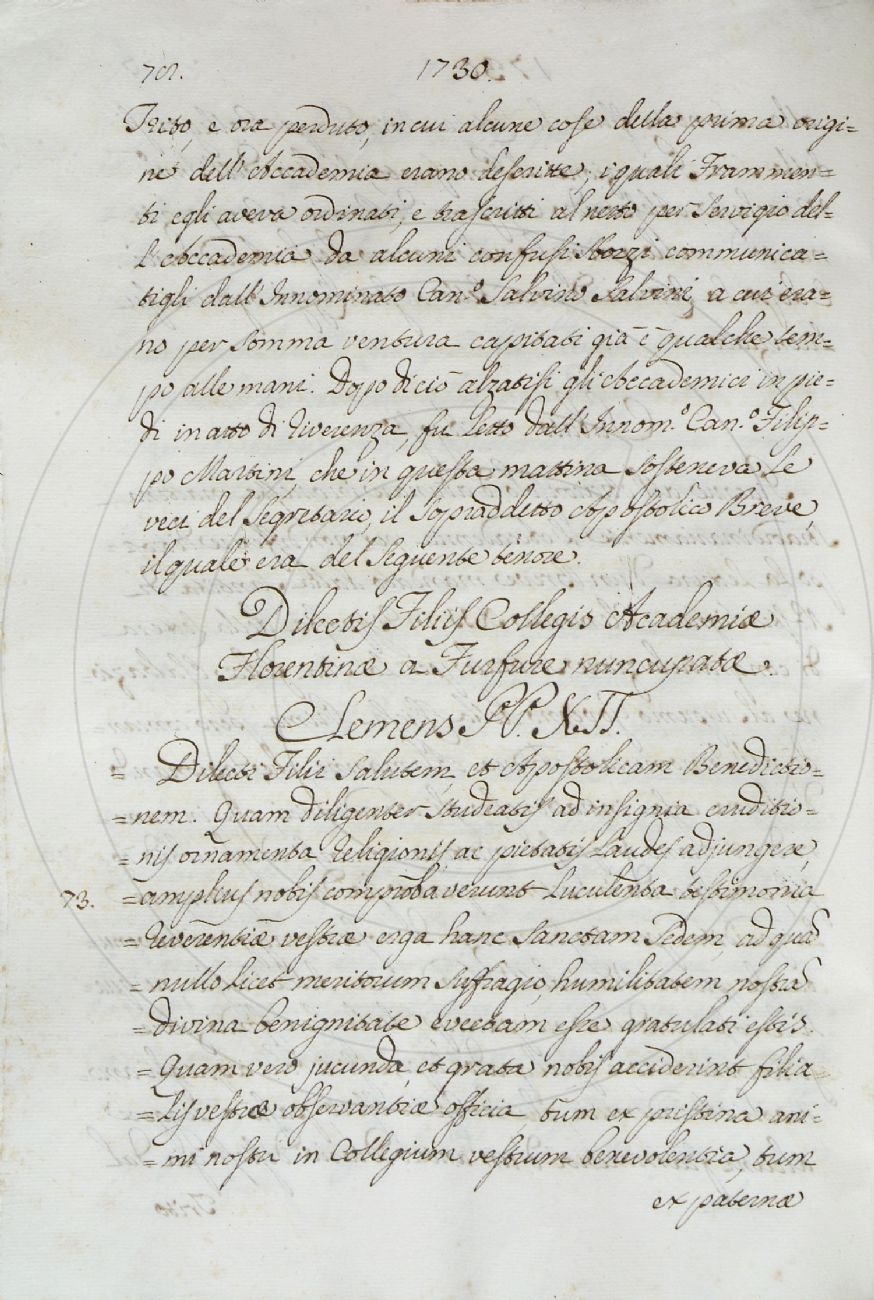 702. 1730.
Trito, e ora perduto, in cui alcune cose della prima origi=
ne dell'Accademia erano descritte; i quali Frammen=
ti egli aveva ordinati, e trascritti al netto per servigio del=
l'Accademia da alcuni confusi sbozzi communica=
tigli dall'Innominato Can.º Salvino Salvini, a cui era=
no per somma ventura capitati già è qualche tem=
po alle mani. Dopo di ciò alzatisi gli Accademici in pie=
di in atto di riverenza, fu letto dall'Innom.º Can.º Filip=
po Martini, che in questa mattina sosteneva le
veci del Segretario, il sopraddetto Apostolico Breve,
il quale era del seguente tenore.
Dilectis Filiis Collegis Academiæ
Florentinæ a Furfure nuncupatæ.
Clemens PP. XII.
= Dilecti Filii salutem, et Apostolicam Benedictio=
= nem. Quam diligenter studeatis ad insignia eruditio=
= nis ornamenta Religionis, ac pietatis laudes adjungere,
73. = amplius nobis comprobaverunt luculenta testimonia
= Reverentiæ vestræ erga hanc Sanctam Sedem, ad quã
= nullo licet meritorum suffragio, humilitatem nostrã
= divina benignitate evectam esse gratulati estis.
= Quam vero jucunda, et grata nobis acciderint filia=
= lis vestræ observantiæ officia, tum ex pristina ani=
= mi nostri in Collegium vestrum benevolentia, tum
ex paternæ